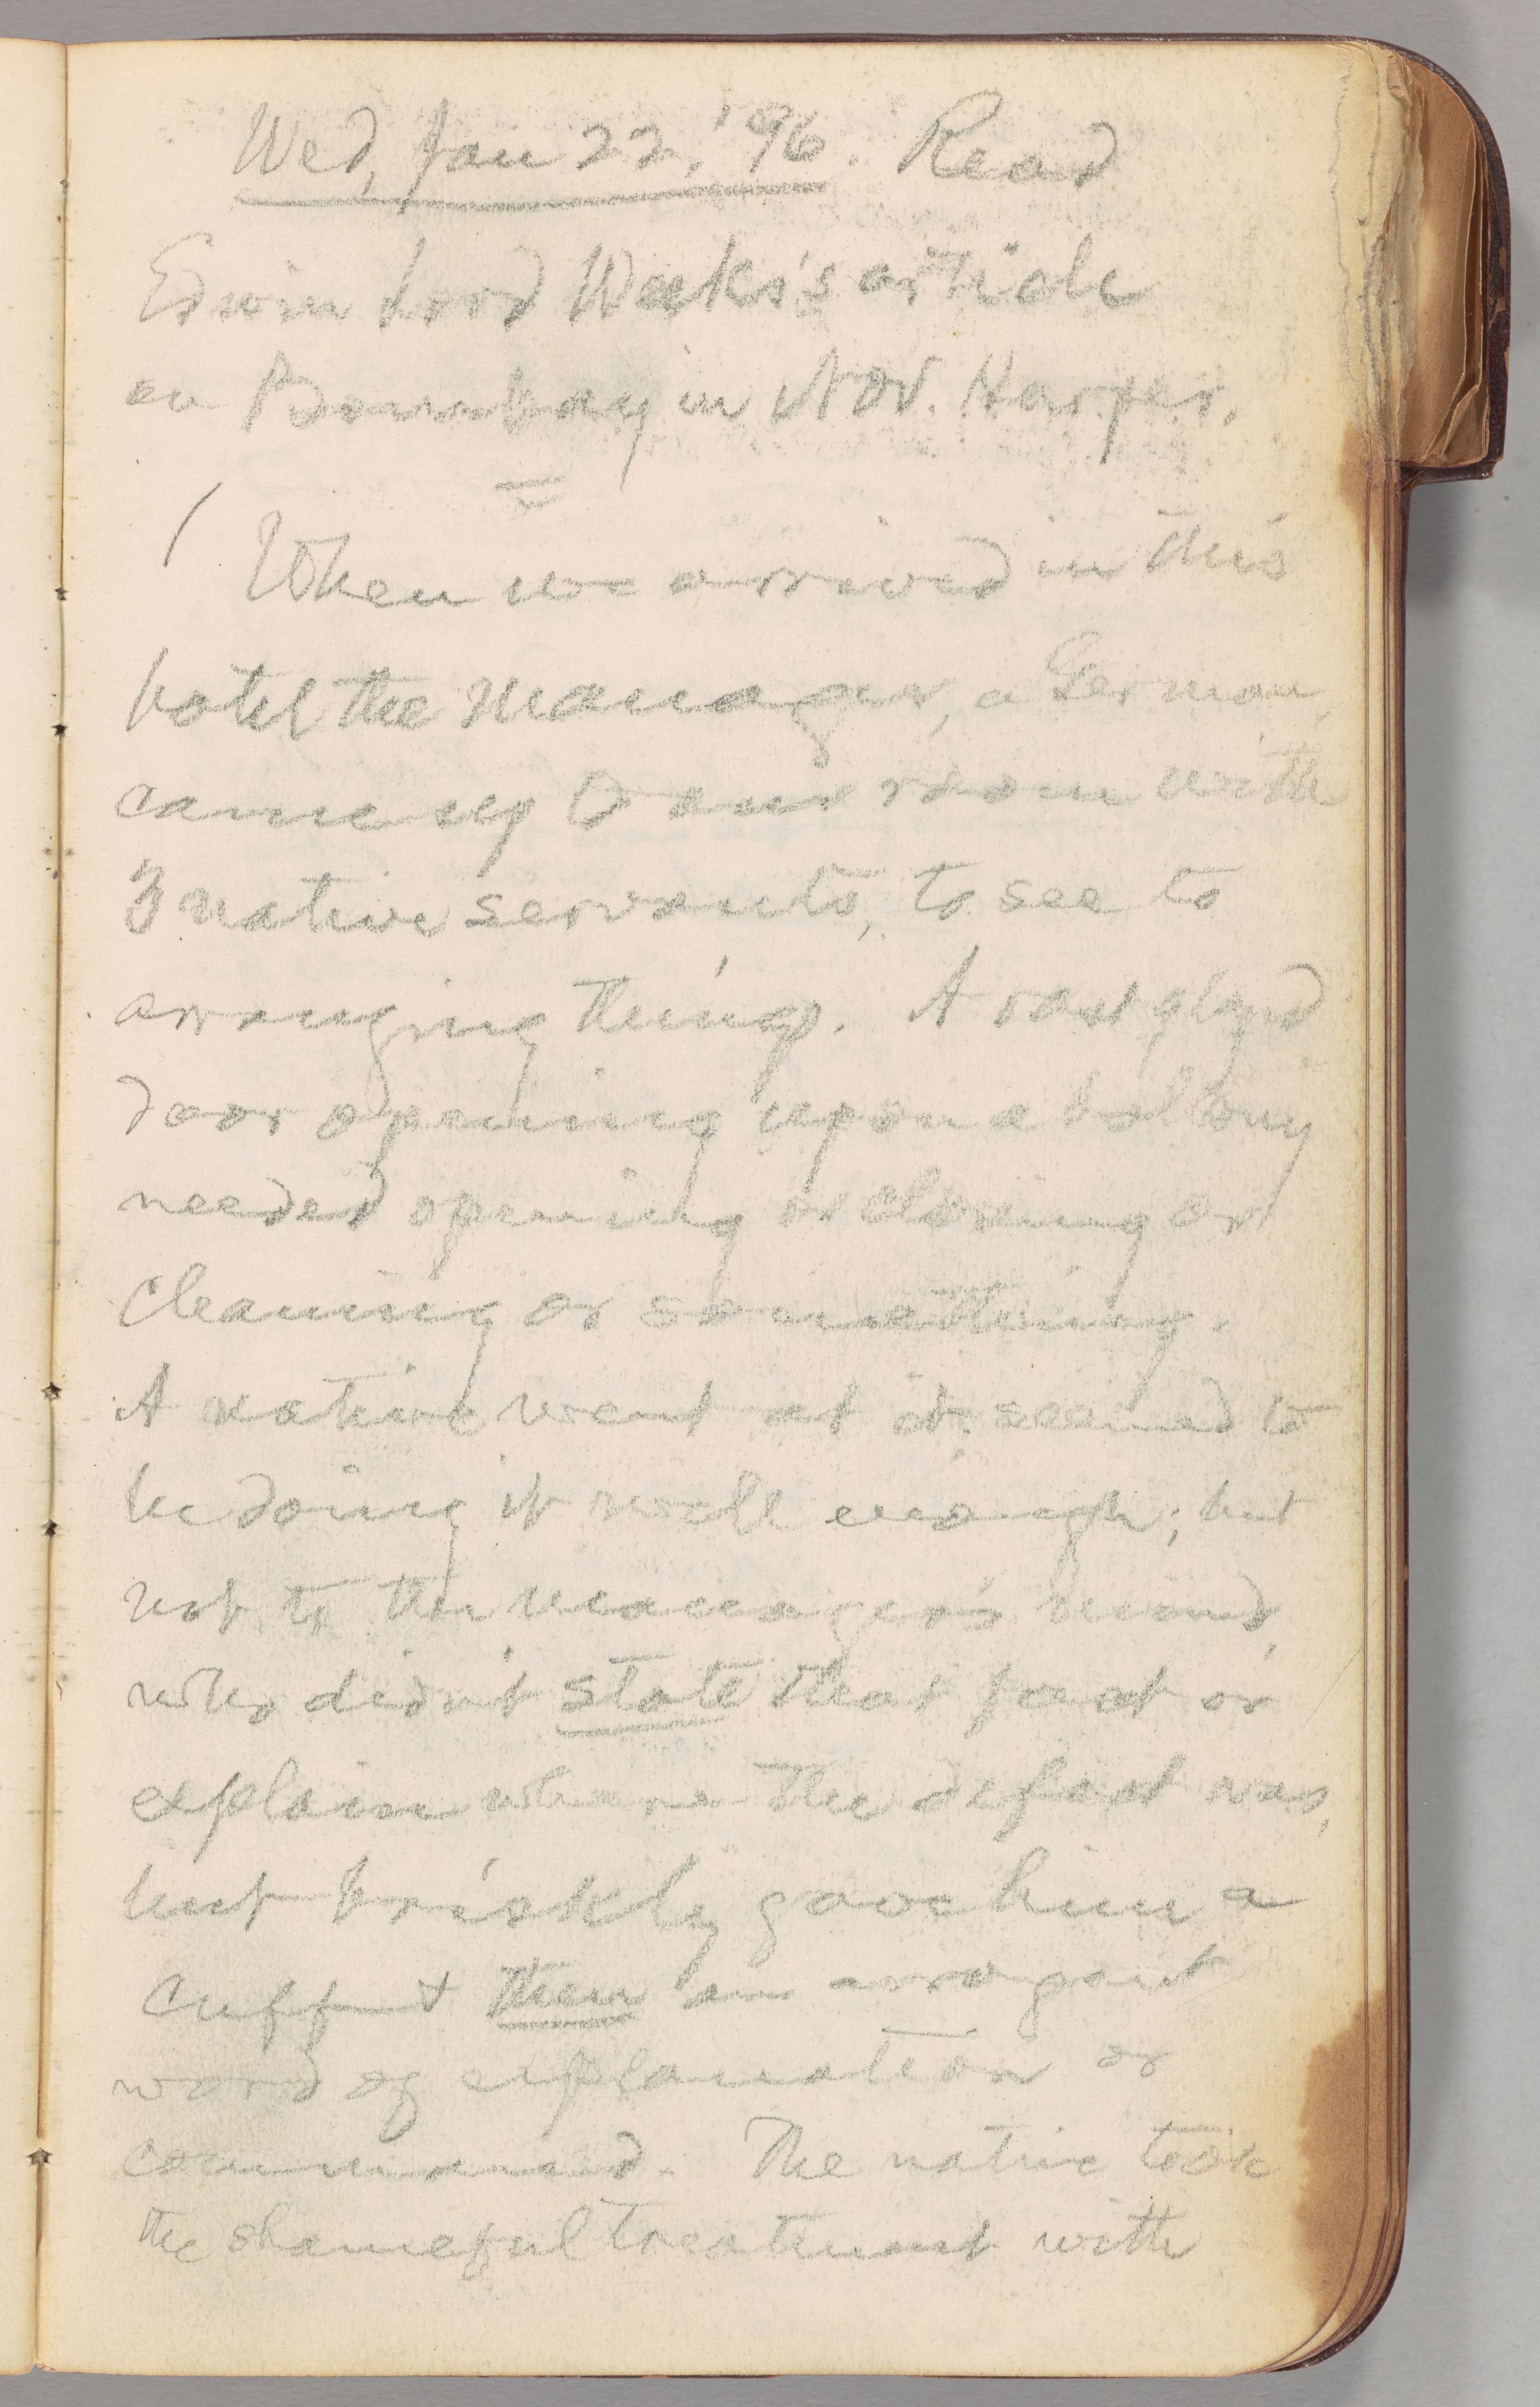 Wed, Jan 22, '96. Read
Edwin Lord Weeks's article
on Bombay in Nov. Harper.
—
( When we arrived in this
hotel the manager, a German,
came up to our room with
3 native servants, to see to
arranging things. A vast glazed
door opening upon a balcony
needed opening or closing or
cleaning or something.
A native went at it; seemed to
be doing it well enough; but
not to the manager's mind,
who didn't state that fact or
explain where the defect was,
but briskly gave him a
cuff & then an arrogant
word of explanation or
command. The native took
the shameful treatment with